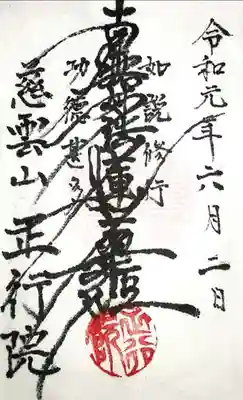 令和元年六月二日
如説修行
南無妙法蓮華経
功徳甚多
慈雲山 正行院
正行院